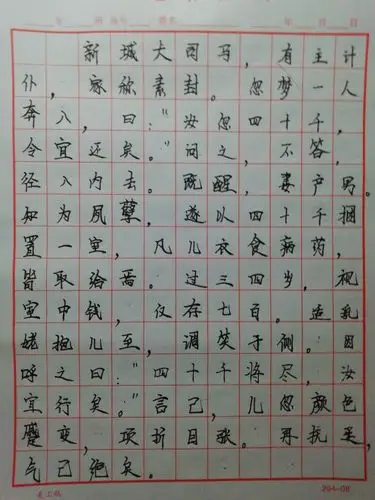 新城大司马，有主计
仆，家称素封。忽梦一人
奔入，曰："汝忽四十千，
令宜还矣。"问之，不答，
径入内去。既醒，妻产男。
知为夙孽，遂以四十千捆
置一室，凡儿衣食病药，
皆取给焉。过三四岁，视
室中钱，仅存七百。适乳
姥抱儿至，调笑于侧。因
呼之曰："四十千将尽，汝
宜行矣。"言已，儿忽颜色
蹙变，项折目张。再抚之，
气已绝矣。